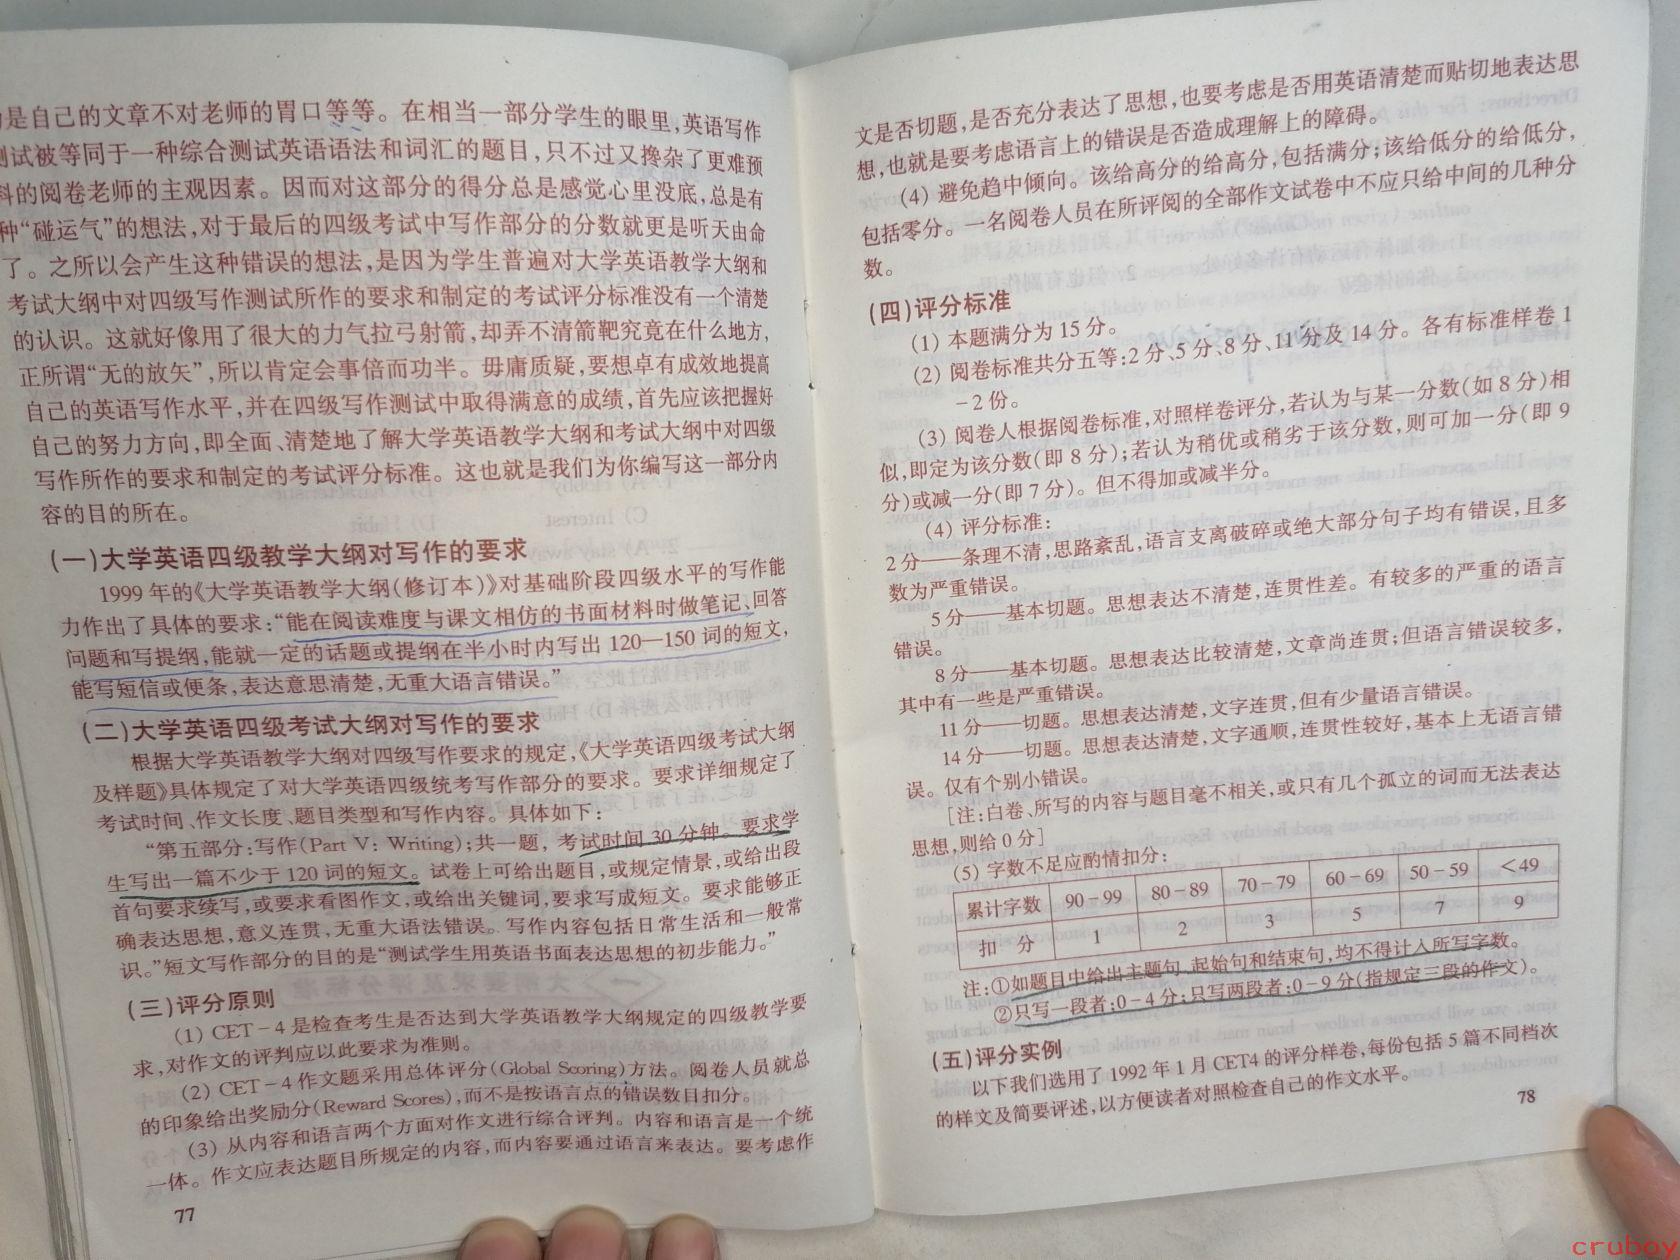 是自己的文章不对老师的胃口等等。在相当一部分学生的眼里,英语写作
测试被等同于一种综合测试英语语法和词汇的题目,只不过又搀杂了更难预
料的阅卷老师的主观因素。因而对这部分的得分总是感觉心里没底,总是有
种“碰运气”的想法,对于最后的四级考试中写作部分的分数就更是听天由命
了。之所以会产生这种错误的想法,是因为学生普遍对大学英语教学大纲和
考试大纲中对四级写作测试所作的要求和制定的考试评分标准没有一个清楚
的认识。这就好像用了很大的力气拉弓射箭,却弄不清箭靶究竟在什么地方,
正所谓“无的放矢”,所以肯定会事倍而功半。毋庸质疑,要想卓有成效地提高
自己的英语写作水平,并在四级写作测试中取得满意的成绩,首先应该把握好
自己的努力方向,即全面、清楚地了解大学英语教学大纲和考试大纲中对四级
写作所作的要求和制定的考试评分标准。这也就是我们为你编写这一部分内
容的目的所在。
(一)大学英语四级教学大纲对写作的要求
1999 年的《大学英语教学大纲(修订本)》对基础阶段四级水平的写作能
力作出了具体的要求:“能在阅读难度与课文相仿的书面材料时做笔记、回答
问题和写提纲,能就一定的话题或提纲在半小时内写出 120—150 词的短文,
能写短信或便条,表达意思清楚,无重大语言错误。”
(二)大学英语四级考试大纲对写作的要求
根据大学英语教学大纲对四级写作要求的规定,《大学英语四级考试大纲
及样题》具体规定了对大学英语四级统考写作部分的要求。要求详细规定了
考试时间、作文长度、题目类型和写作内容。具体如下:
“第五部分:写作(Part V: Writing);共一题, 考试时间 30 分钟。要求学
生写出一篇不少于 120 词的短文。试卷上可给出题目,或规定情景,或给出段
首句要求续写,或要求看图作文,或给出关键词,要求写成短文。要求能够正
确表达思想,意义连贯,无重大语法错误。写作内容包括日常生活和一般常
识。”短文写作部分的目的是“测试学生用英语书面表达思想的初步能力。”
(三)评分原则
(1) CET-4 是检查考生是否达到大学英语教学大纲规定的四级教学要
求,对作文的评判应以此要求为准则。
(2) CET-4 作文题采用总体评分(Global Scoring)方法。阅卷人员就总
的印象给出奖励分(Reward Scores),而不是按语言点的错误数目扣分。
(3) 从内容和语言两个方面对作文进行综合评判。内容和语言是一个统
一体。作文应表达题目所规定的内容,而内容要通过语言来表达。要考虑作
77
文是否切题,是否充分表达了思想,也要考虑是否用英语清楚而贴切地表达思
想,也就是要考虑语言上的错误是否造成理解上的障碍。
(4) 避免趋中倾向。该给高分的给高分,包括满分;该给低分的给低分,
包括零分。一名阅卷人员在所评阅的全部作文试卷中不应只给中间的几种分
数。
(四)评分标准
(1) 本题满分为 15 分。
(2) 阅卷标准共分五等:2 分、5 分、8 分、11 分及 14 分。各有标准样卷 1
-2 份。
(3) 阅卷人根据阅卷标准,对照样卷评分,若认为与某一分数(如 8 分)相
似,即定为该分数(即 8 分);若认为稍优或稍劣于该分数,则可加一分(即 9
分)或减一分(即 7 分)。但不得加或减半分。
(4) 评分标准:
2 分——条理不清,思路紊乱,语言支离破碎或绝大部分句子均有错误,且多
数为严重错误。
5 分——基本切题。思想表达不清楚,连贯性差。有较多的严重的语言
错误。
8 分——基本切题。思想表达比较清楚,文章尚连贯;但语言错误较多,
其中有一些是严重错误。
11 分——切题。思想表达清楚,文字连贯,但有少量语言错误。
14 分——切题。思想表达清楚,文字通顺,连贯性较好,基本上无语言错
误。仅有个别小错误。
[注:白卷、所写的内容与题目毫不相关,或只有几个孤立的词而无法表达
思想,则给 0 分]
(5) 字数不足应酌情扣分:
累计字数 90-99 80-89 70-79 60-69 50-59 <49
扣 分 1 2 3 5 7 9
注:①如题目中给出主题句、起始句和结束句,均不得计入所写字数。
②只写一段者:0-4 分;只写两段者:0-9 分(指规定三段的作文)。
(五)评分实例
以下我们选用了 1992 年 1 月 CET4 的评分样卷,每份包括 5 篇不同档次
的样文及简要评述,以方便读者对照检查自己的作文水平。
78
cruboy